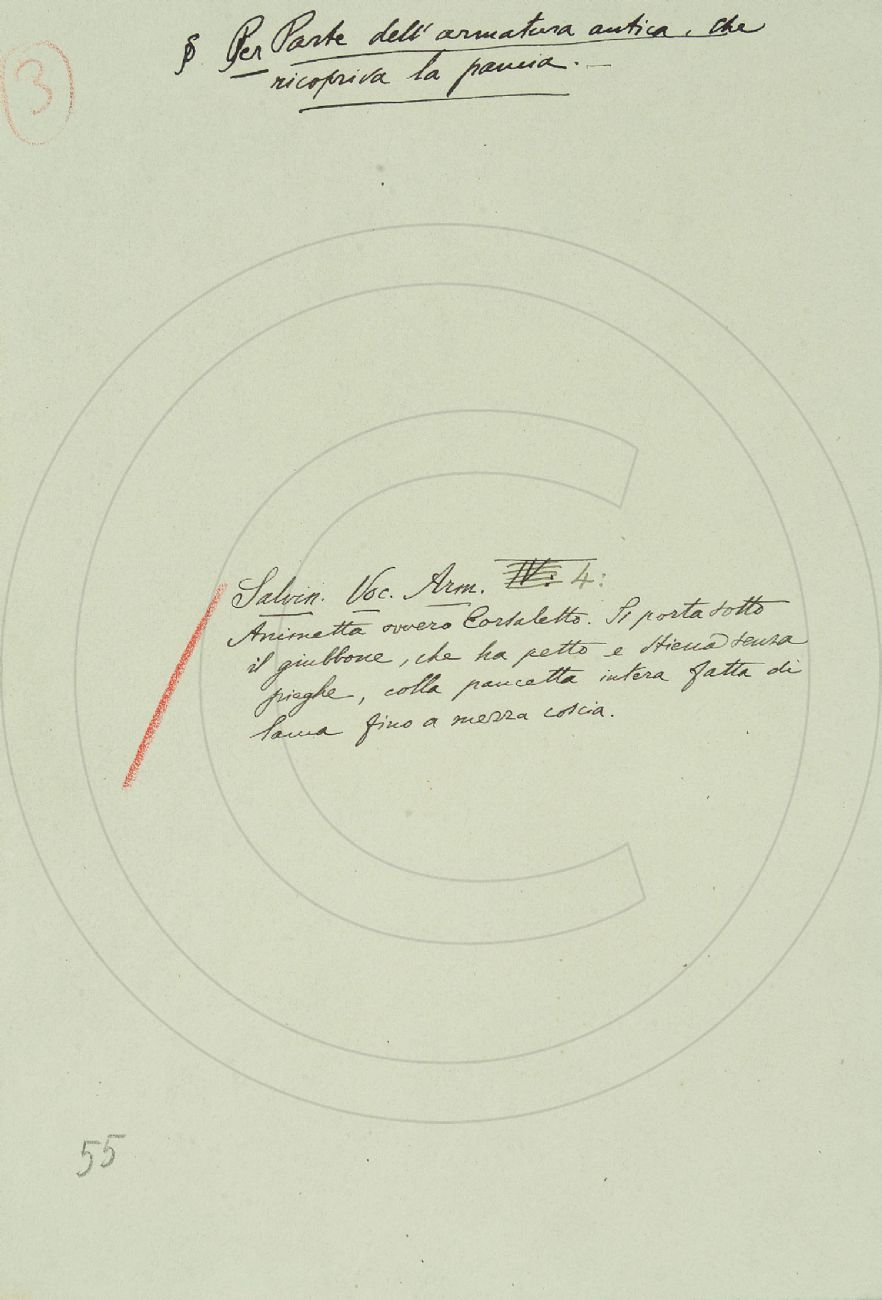 3
§. Per Parte dell'armatura antica, che
ricopriva la pancia. —
Salvin. Voc. Arm. IV: 4:
Animetta ovvero Corsaletto. Si porta sotto
il giubbone, che ha petto e stiena senza
pieghe, colla pancetta intera fatta di
lama fino a mezza coscia.
55